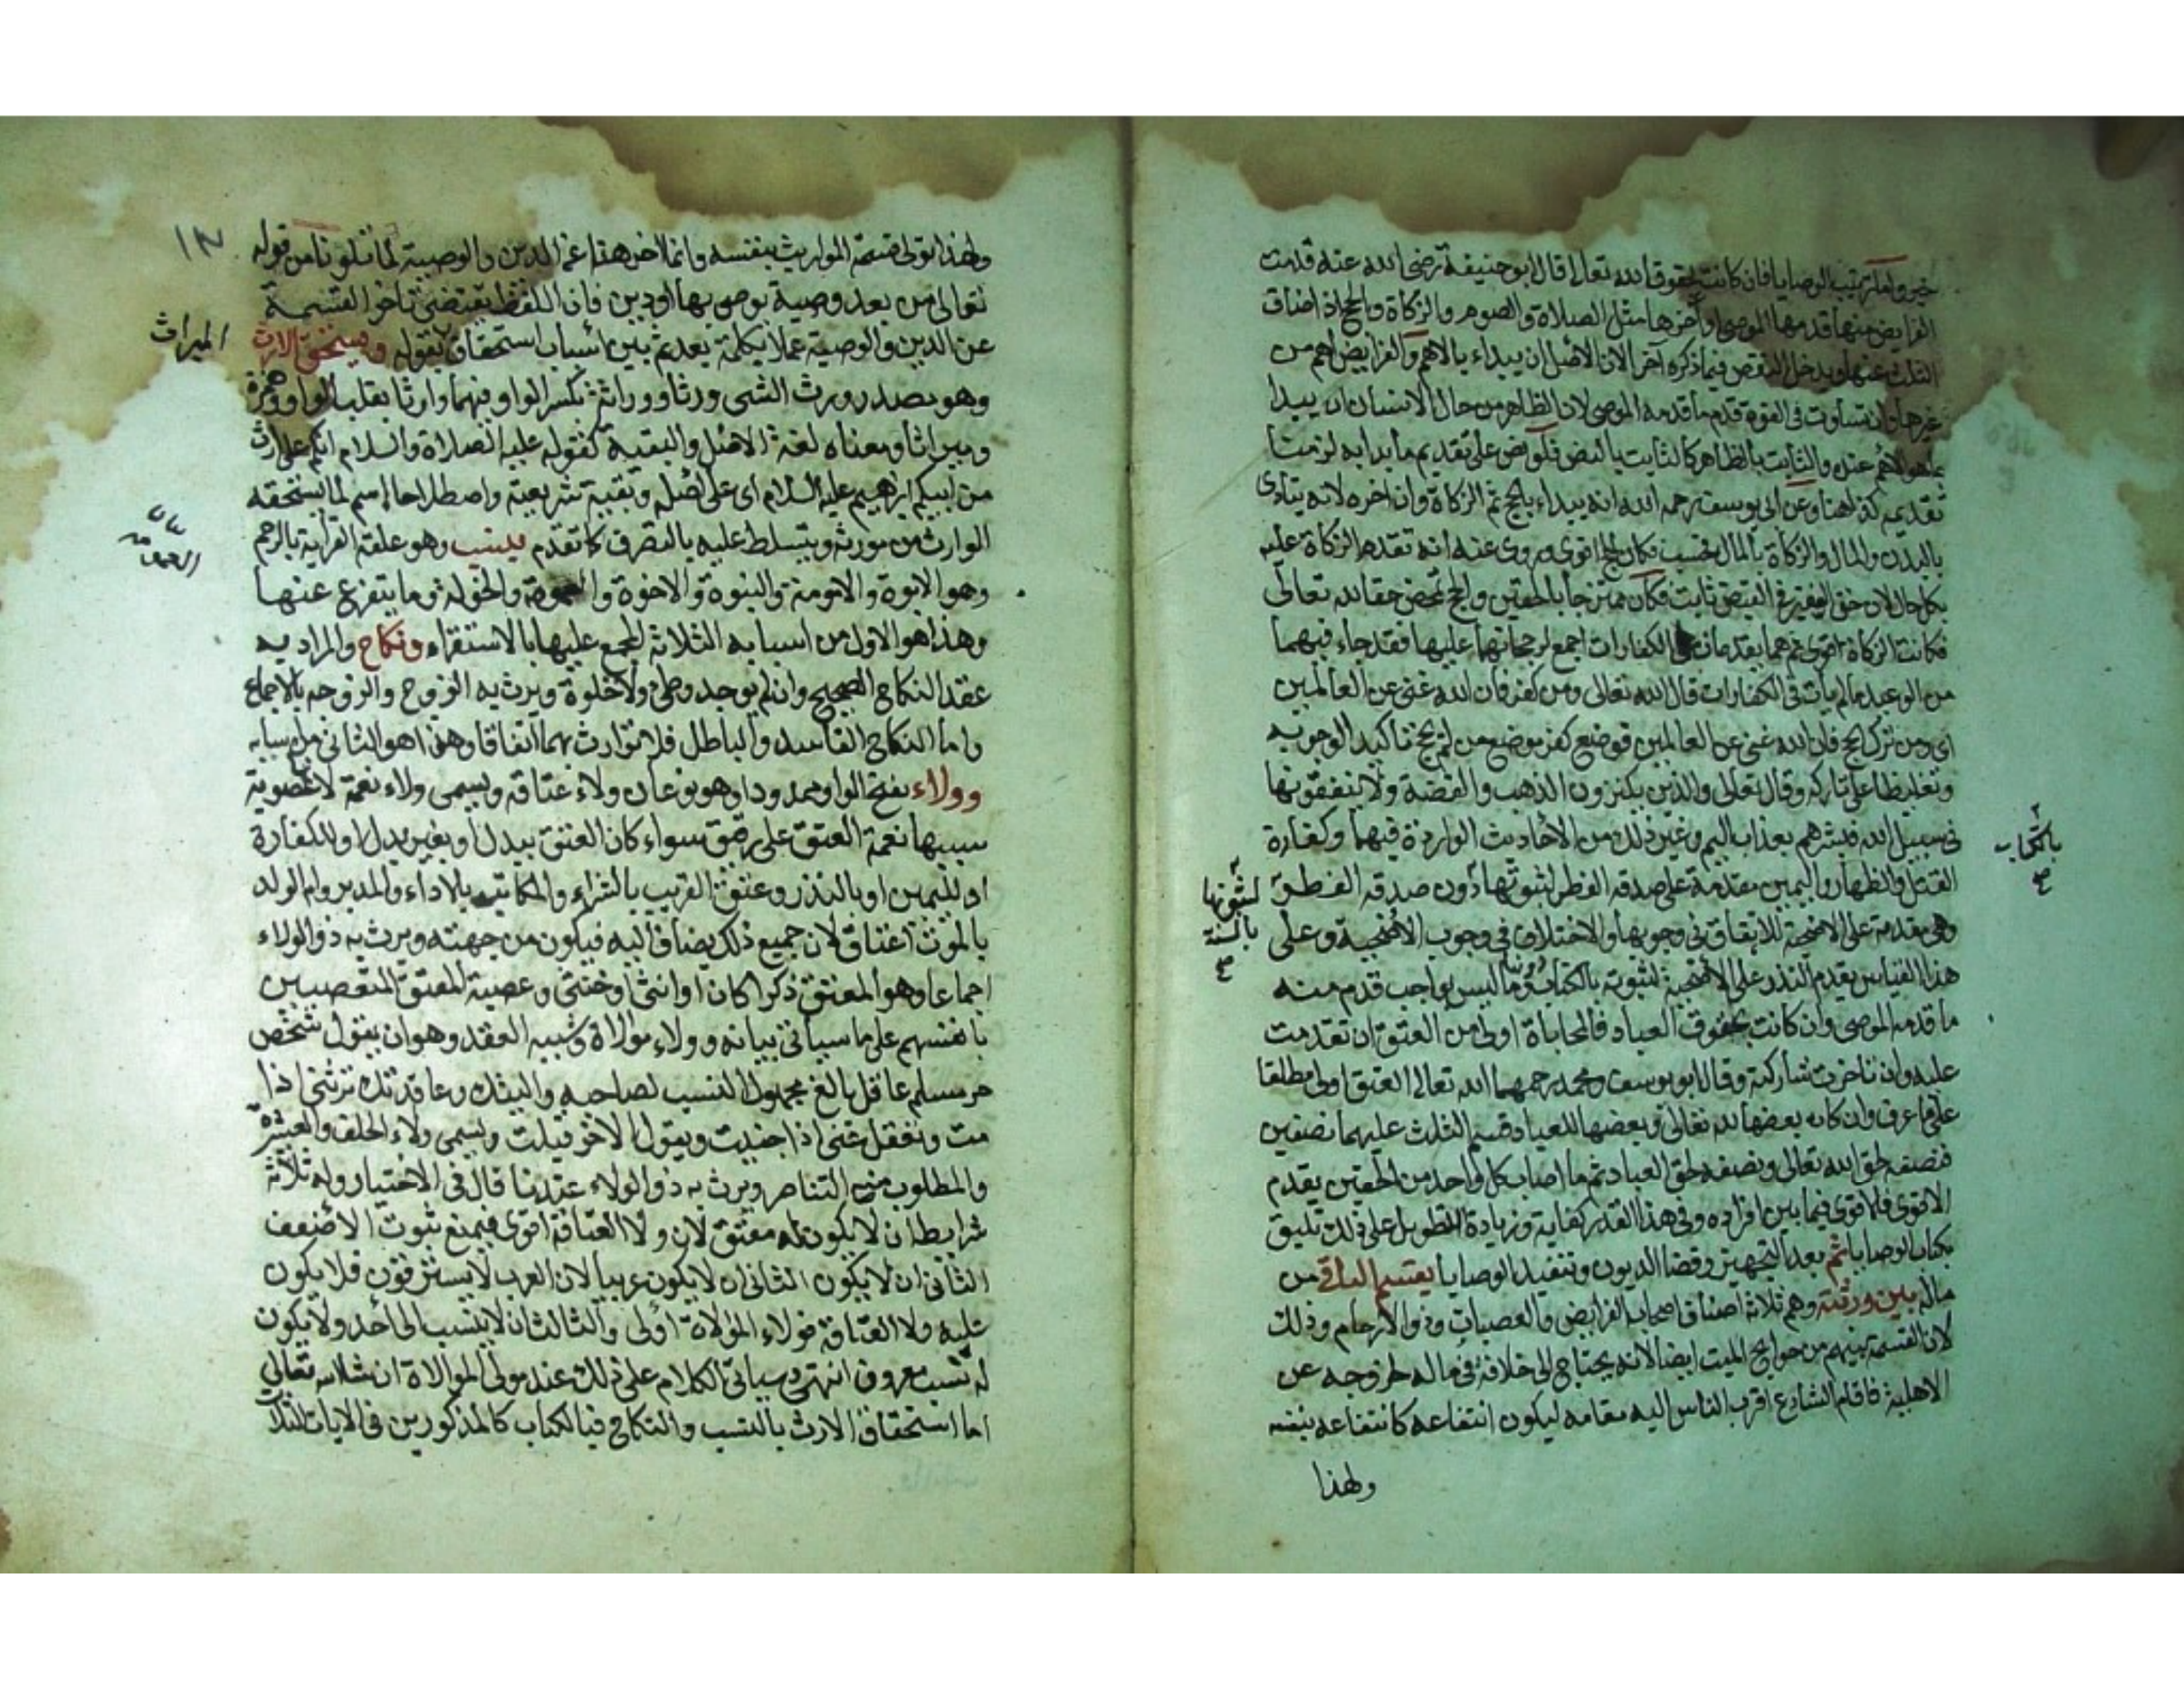 خير واما ترتيب الوصايا فان كانت بحقوق الله تعالى قال ابو حنيفة رضي الله عنه قدمت
الفرايض منها قدمها الموصي او اخرها مثل الصلاة والصوم والزكاة والحج اذا ضاق
الثلث عنها ويدخل النقص فيما ذكره آخرا لان الاصل ان يبداء بالاهم والفرايض اهم من
غيرها وان تساوت في القوة قدم ما قدمه الموصي لان الظاهر من حال الانسان ان يبدا
بما هو الاهم عنده والثابت بالظاهر كالثابت بالنص فلو نص على تقديم ما بدا به لزمنا
تقديمه كذا هنا وعن ابي يوسف رحمه الله انه يبداء بالحج ثم الزكاة وان اخره لانه يتادى
بالبدن والمال والزكاة بالمال فحسب فكان الحج اقوى وروى عنه انه تقدم الزكاة عليه
بكل حال لان حق الفقير في القبض ثابت فكان ممتزجا بالحقين والحج تمحض حقا لله تعالى
فكانت الزكاة اقوى ثم هما يقدمان على الكفارات اجمع لرجحانهما عليها فقد جاء فيهما
من الوعيد ما لم يات في الكفارات قال الله تعالى ومن كفر فان الله غني عن العالمين
اي ومن ترك الحج فان الله غني عن العالمين فوضع كفر موضع من لم يحج تاكيد الوجوبه
وتغليظا على تاركه وقال تعالى والذين يكنزون الذهب والفضة ولا ينفقونها
في سبيل الله فبشرهم بعذاب اليم وغير ذلك من الاحاديث الواردة فيهما وكفارة
القتل والظهار واليمين مقدمة على صدقة الفطر لثبوتها دون صدقة الفطر
بالكتاب صح
لثبوتها بالسنة صح
وهي مقدمة على الاضحية للاتفاق في وجوبها والاختلاف في وجوب الاضحية وعلى
هذا القياس يقدم النذر على الاضحية لثبوته بالكتاب دونها وما ليس بواجب قدم منه
ما قدمه الموصي وان كانت بحقوق العباد فالمحاباة اولى من العتق ان تقدمت
عليه وان تاخرت شاركته وقال ابو يوسف ومحمد رحمهما الله تعالى العتق اولى مطلقا
على ما عرف وان كان بعضها لله تعالى وبعضها للعباد قسم الثلث عليهما نصفين
فنصفه لحق الله تعالى ونصفه لحق العباد ثم ما اصاب كل واحد من الحقين يقدم
الاقوى فالاقوى فيما بين افراده وفي هذا القدر كفاية وزيادة التطويل على ذلك تليق
بكتاب الوصايا ثم بعد التجهيز وقضا الديون وتنفيذ الوصايا يقتسم الباقي من
ماله بين ورثته وهم ثلاثة اصناف اصحاب الفرايض والعصبات وذوا الارحام وذلك
لان القسمة بينهم من حوايج الميت ايضا لانه يحتاج الى خلافة في ماله لخروجه عن
الاهلية فاقام الشارع اقرب الناس اليه مقامه ليكون انتفاعه كانتفاعه بنفسه
ولهذا
١٢
ولهذا تولى قسمة المواريث بنفسه وانما اخر هذا عن الدين والوصية لما تلونا من قوله
تعالى من بعد وصية يوصي بها او دين فان اللفظ يقتضي تاخر القسمة
عن الدين والوصية عملا بكلمة بعد ثم بين اسباب استحقاق بقوله ويستحق الارث
الميراث
وهو مصدر ورث الشي ورثا ووراثة بكسر الواو فيهما وارثا بقلب الواو همزة
وميراثا ومعناه لغة الاصل والبقية كقوله عليه الصلاة والسلام انكم على ارث
من ابيكم ابرهيم عليه السلام اي على اصله وبقية شريعته واصطلاحا اسم لما يستحقه
الوارث من مورثه ويتسلط عليه بالتصرف كما تقدم بنسب وهو علقة القرابة بالرحم
وهو الابوة والامومة والبنوة والاخوة والعمومة والخولة وما يتفرع عنها
وهذا هو الاول من اسبابه الثلاثة المجمع عليها بالاستقراء ونكاح والمراد به
عقد النكاح الصحيح وان لم يوجد وطئ ولا خلوة ويرث به الزوج والزوجه بالاجماع
واما النكاح الفاسد والباطل فلا توارث بهما اتفاقا وهذا هو الثاني من اسبابه
وولاء بفتح الواو ممدودا وهو نوعان ولاء عتاقة ويسمى ولاء نعمة لا عصوبة
سببها نعمة العتق على رقيق سواء كان العتق ببدل او بغير بدل او للكفارة
او لليمين او بالنذر وعتق القريب بالشراء والمكاتب بالاداء والمدبر وام الولد
بالموت اعتاق لان جميع ذلك يضاف اليه فيكون من جهته ويرث به ذو الولاء
اجماعا وهو المعتق ذكرا كان او انثى او خنثى وعصبة المعتق المتعصبين
بانفسهم على ما سياتي بيانه وولاء موالاة وسببه العقد وهو ان يقول شخص
حر مسلم عاقل بالغ مجهول النسب لصاحبه واليتك وعاقدتك ترثني اذا
مت وتعقل عني اذا جنيت ويقول الاخر قبلت ويسمى ولاء الحلف والعشرة
والمطلوب منه التناصر ويرث به ذو الولاء عندنا قال في الاختيار وله ثلاثة
شرايط ان لا يكون له معتق لان ولاء العتاقة اقوى فيمنع ثبوت الاضعف
الثاني ان لا يكون الثاني ان لا يكون عربيا لان العرب لا يسترقون فلا يكون
عليه ولاء العتاقة فولاء الموالاة اولى والثالث ان لا ينسب الى احد ولا يكون
له نسب معروف انتهى وسياتي الكلام على ذلك عند مولى الموالاة ان شاء الله تعالى
اما استحقاق الارث بالنسب والنكاح فبالكتاب كالمذكورين في الايات الثلاث